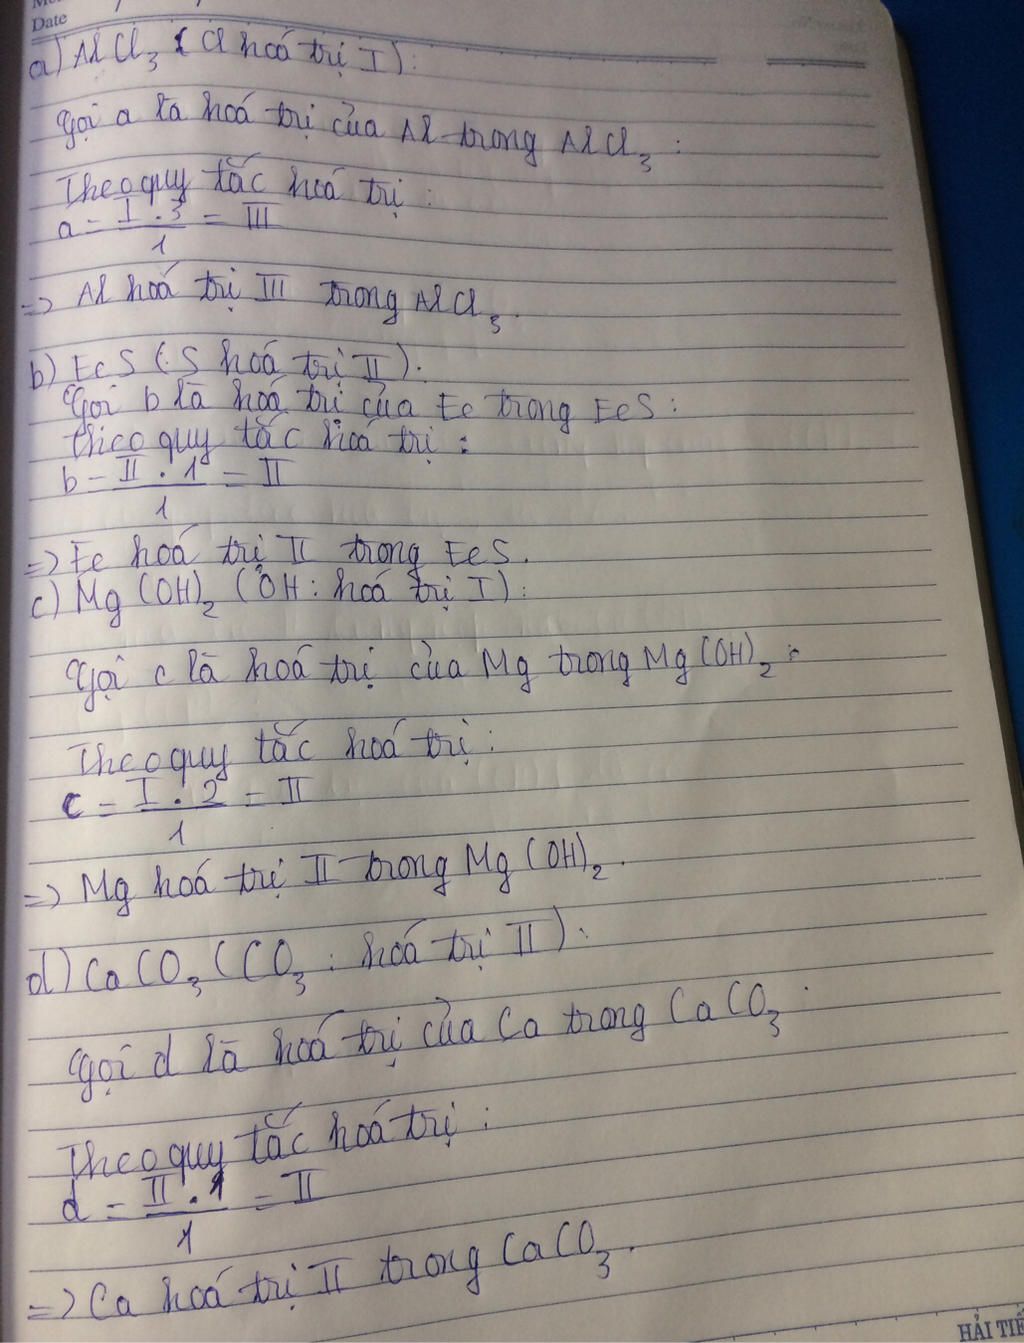 Date
a) AlCl3 (Cl hoá trị I):
Gọi a là hoá trị của Al trong AlCl3:
Theo quy tắc hoá trị:
a = I . 3 / 1 = III
=> Al hoá trị III trong AlCl3.
b) FeS (S hoá trị II).
Gọi b là hoá trị của Fe trong FeS:
theo quy tắc hoá trị:
b = II . 1 / 1 = II
=> Fe hoá trị II trong FeS.
c) Mg(OH)2 (OH: hoá trị I):
Gọi c là hoá trị của Mg trong Mg(OH)2:
Theo quy tắc hoá trị:
c = I . 2 / 1 = II
=> Mg hoá trị II trong Mg(OH)2.
d) CaCO3 (CO3: hoá trị II):
Gọi d là hoá trị của Ca trong CaCO3:
Theo quy tắc hoá trị:
d = II . 1 / 1 = II
=> Ca hoá trị II trong CaCO3.